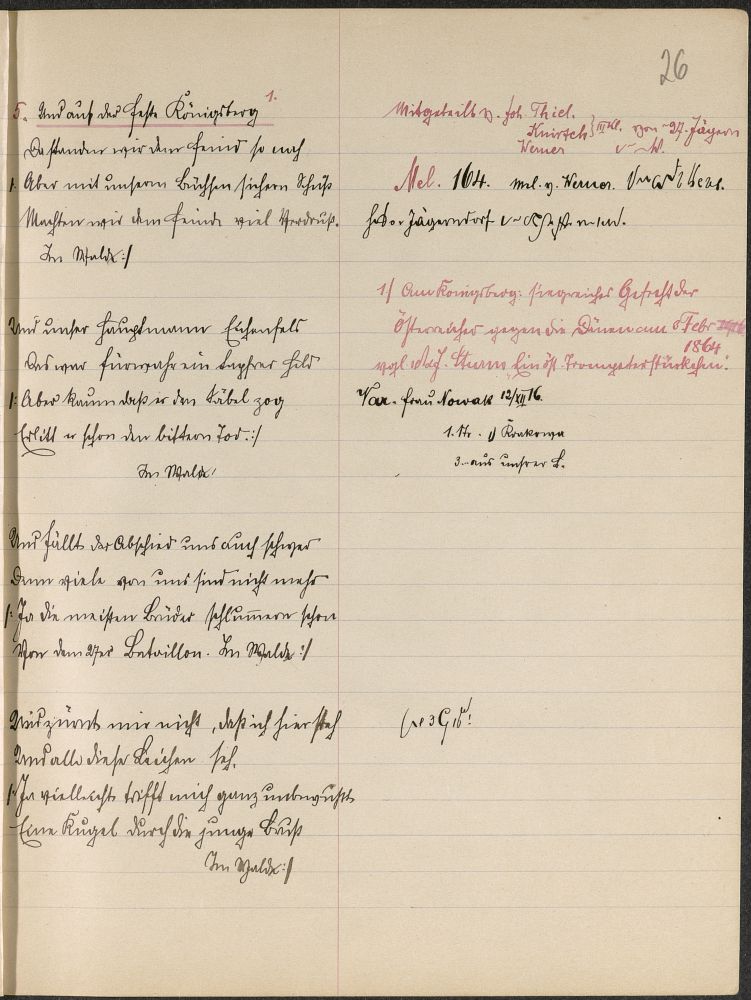 26
5. Und auf der Feste Königsberg 1.
Da standen wir dem Feind so nah
|: Aber mit unserm Büchsen sichern Schuß
Machten wir dem Feinde viel Verdruß.
Im Walde :|
Und unser Hauptmann Eichenfels
Das war fürwahr ein tapfrer Held
|: Aber kaum daß er den Säbel zog
Erlitt er schon den bittern Tod. :|
Im Walde!
Und fällt der Abschied uns auch schwer
Denn viele von uns sind nicht mehr
|: Ja die meisten Brüder schlummern schon
Von dem 27er Bataillon. Im Walde :|
Und zürnt mir nicht, daß ich hier steh
Und alle diese Leichen seh.
|: Ja vielleicht trifft mich ganz unbewußt
Eine Kugel durch die junge Brust
Im Walde :|
Mitgeteilt v. Joh. Thiel.
Knirsch } III Kl. von 27. Jägern
Werner
Mel. 164. mel. v. Werner.
Jägerndorf
1/ Am Königsberg: siegreiches Gefecht der
Österreicher gegen die Dänen am 3 Febr
1864
vgl. Aug. Sturm Ein öst. Trompeterstückchen.
Var. Frau Nowak 12/XII 16.
1. Str. Krakowa
3. aus unsrer L.